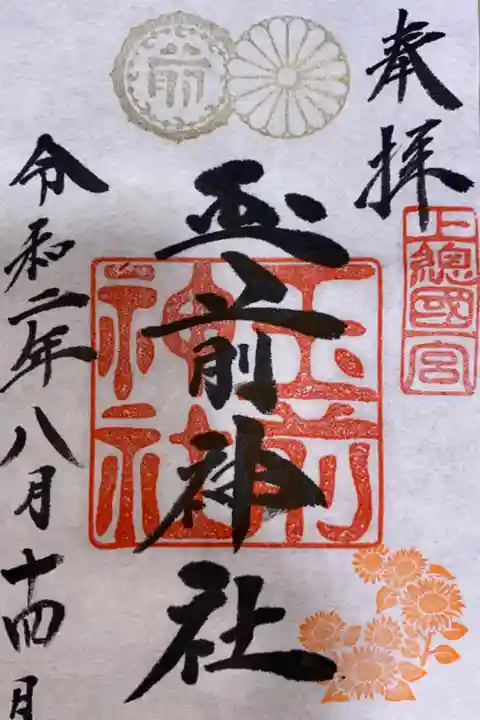 奉拝
上總國一宮
玉前神社
玉前神社
令和二年八月十四日
前